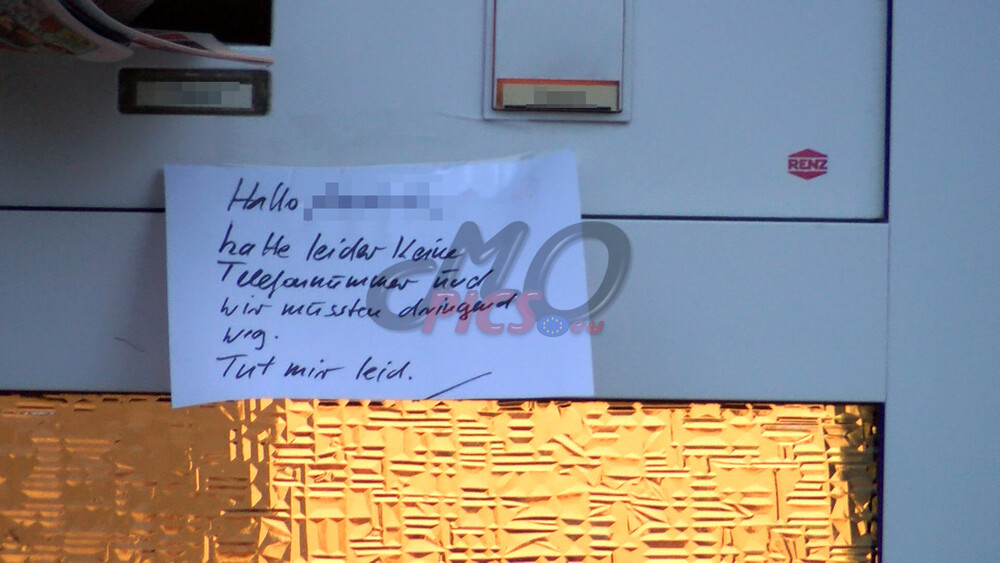 RENZ
Hallo
hatte leider keine
Telefonnummer und
wir mussten dringend
weg.
Tut mir leid.
CMO
PICS.eu